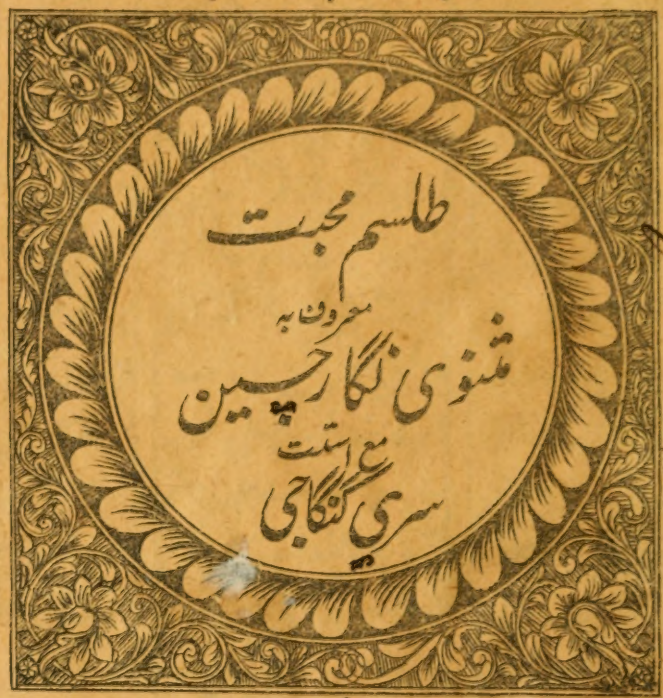 طلسم محبت
معروف بہ
مثنوی نگار چین
مع استت
سری گنگاجی